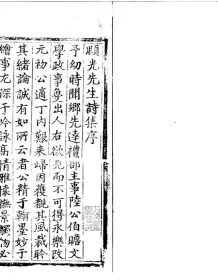 頤光先生詩集序
予幼時聞鄉先達禮部主事陸公伯瞻文
學政事夐出人右欲見而不可得永樂改
元初公適丁内艱來歸因獲覩其風裁聆
其緒論誠有如所云者公精于翰墨妙于
繪事尤深于吟詠高情雅懷撫景觸物必